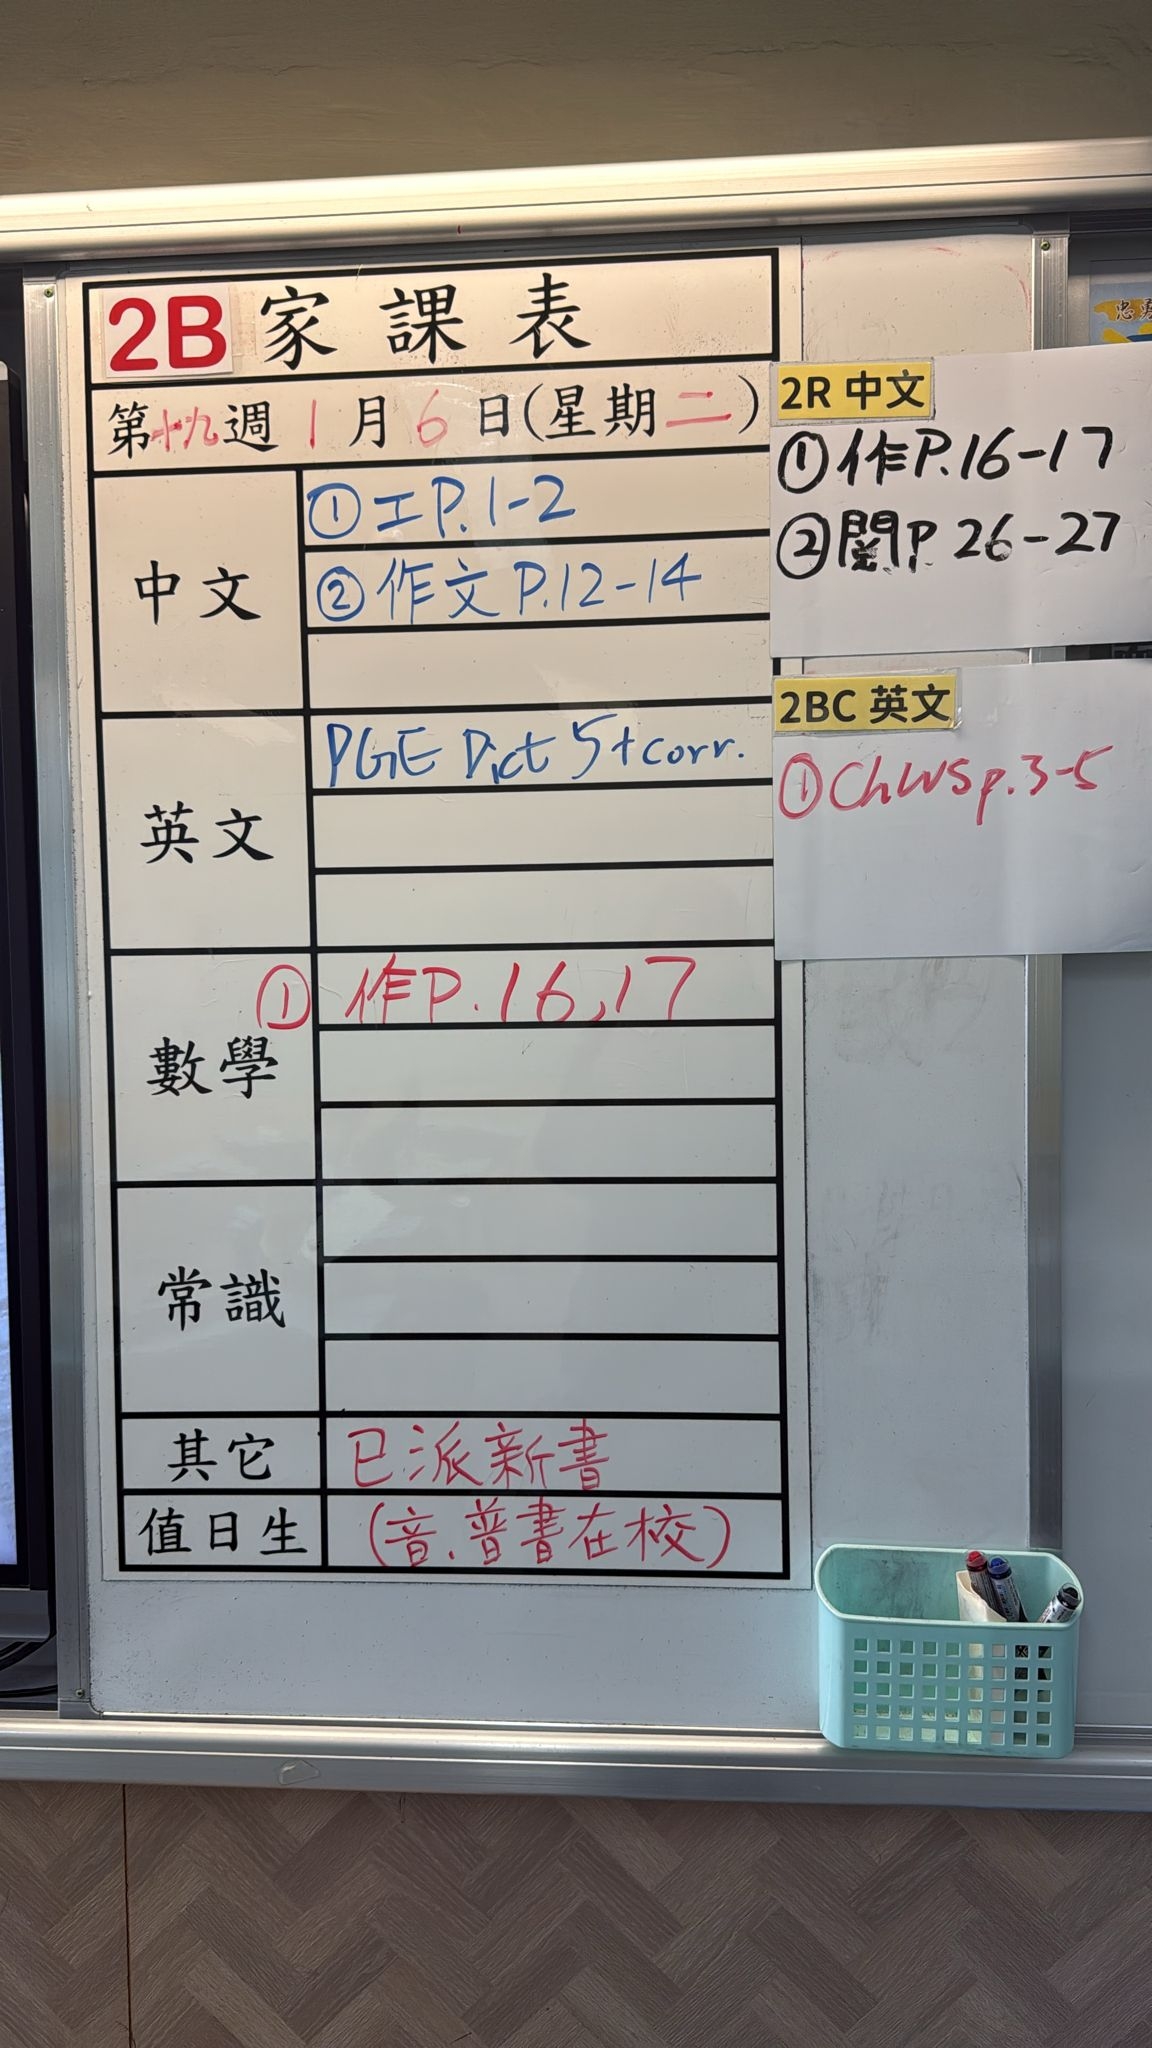 2B 家課表
第十九週 1月6日(星期二)
中文
①工P.1-2
②作文P.12-14
英文
PGE Dict 5+corr.
數學
① 作P.16,17
常識
其它
已派新書
值日生
(音.普書在校)
2R 中文
①作P.16-17
②閱P.26-27
2BC 英文
①Ch WS p.3-5
忠勇